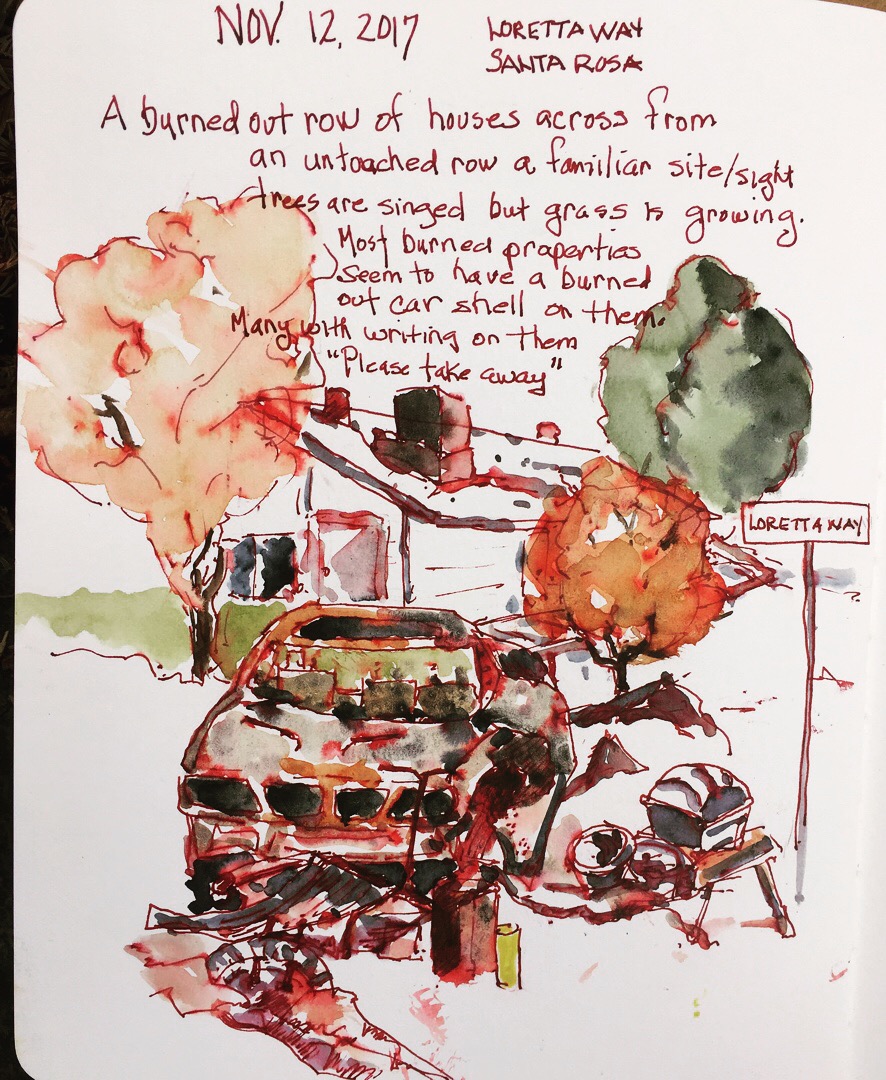 NOV. 12, 2017
LORETTA WAY
SANTA ROSA
A burned out row of houses across from
an untouched row a familiar site/sight
trees are singed but grass is growing.
Most burned properties
seem to have a burned
out car shell on them.
Many with writing on them
"Please take away"
LORETTA WAY